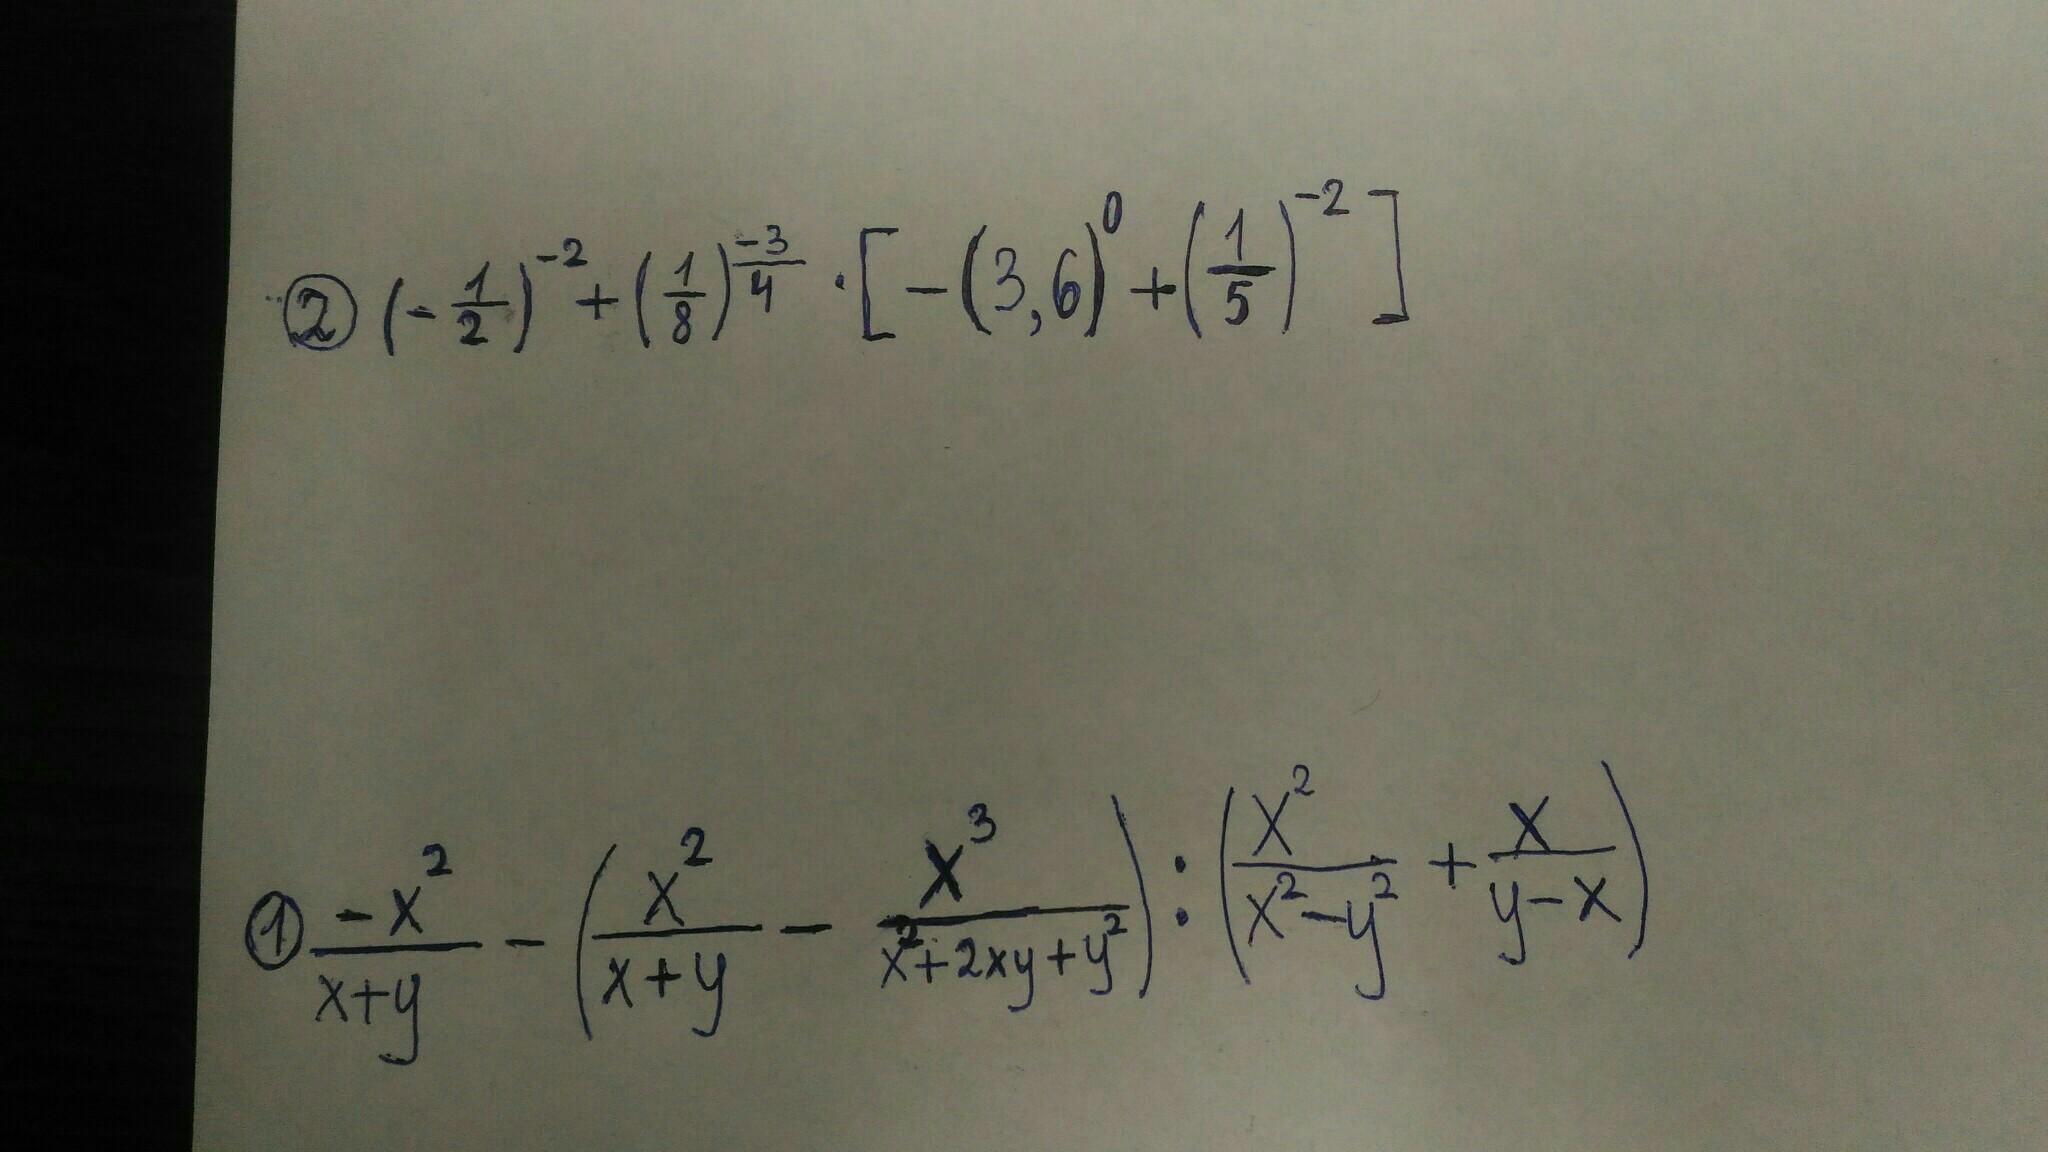 ② (-1/2)^-2 + (1/8)^(-3/4) · [-(3,6)^0 + (1/5)^-2]
① -x^2/(x+y) - (x^2/(x+y) - x^3/(x^2+2xy+y^2)) : (x^2/(x^2-y^2) + x/(y-x))